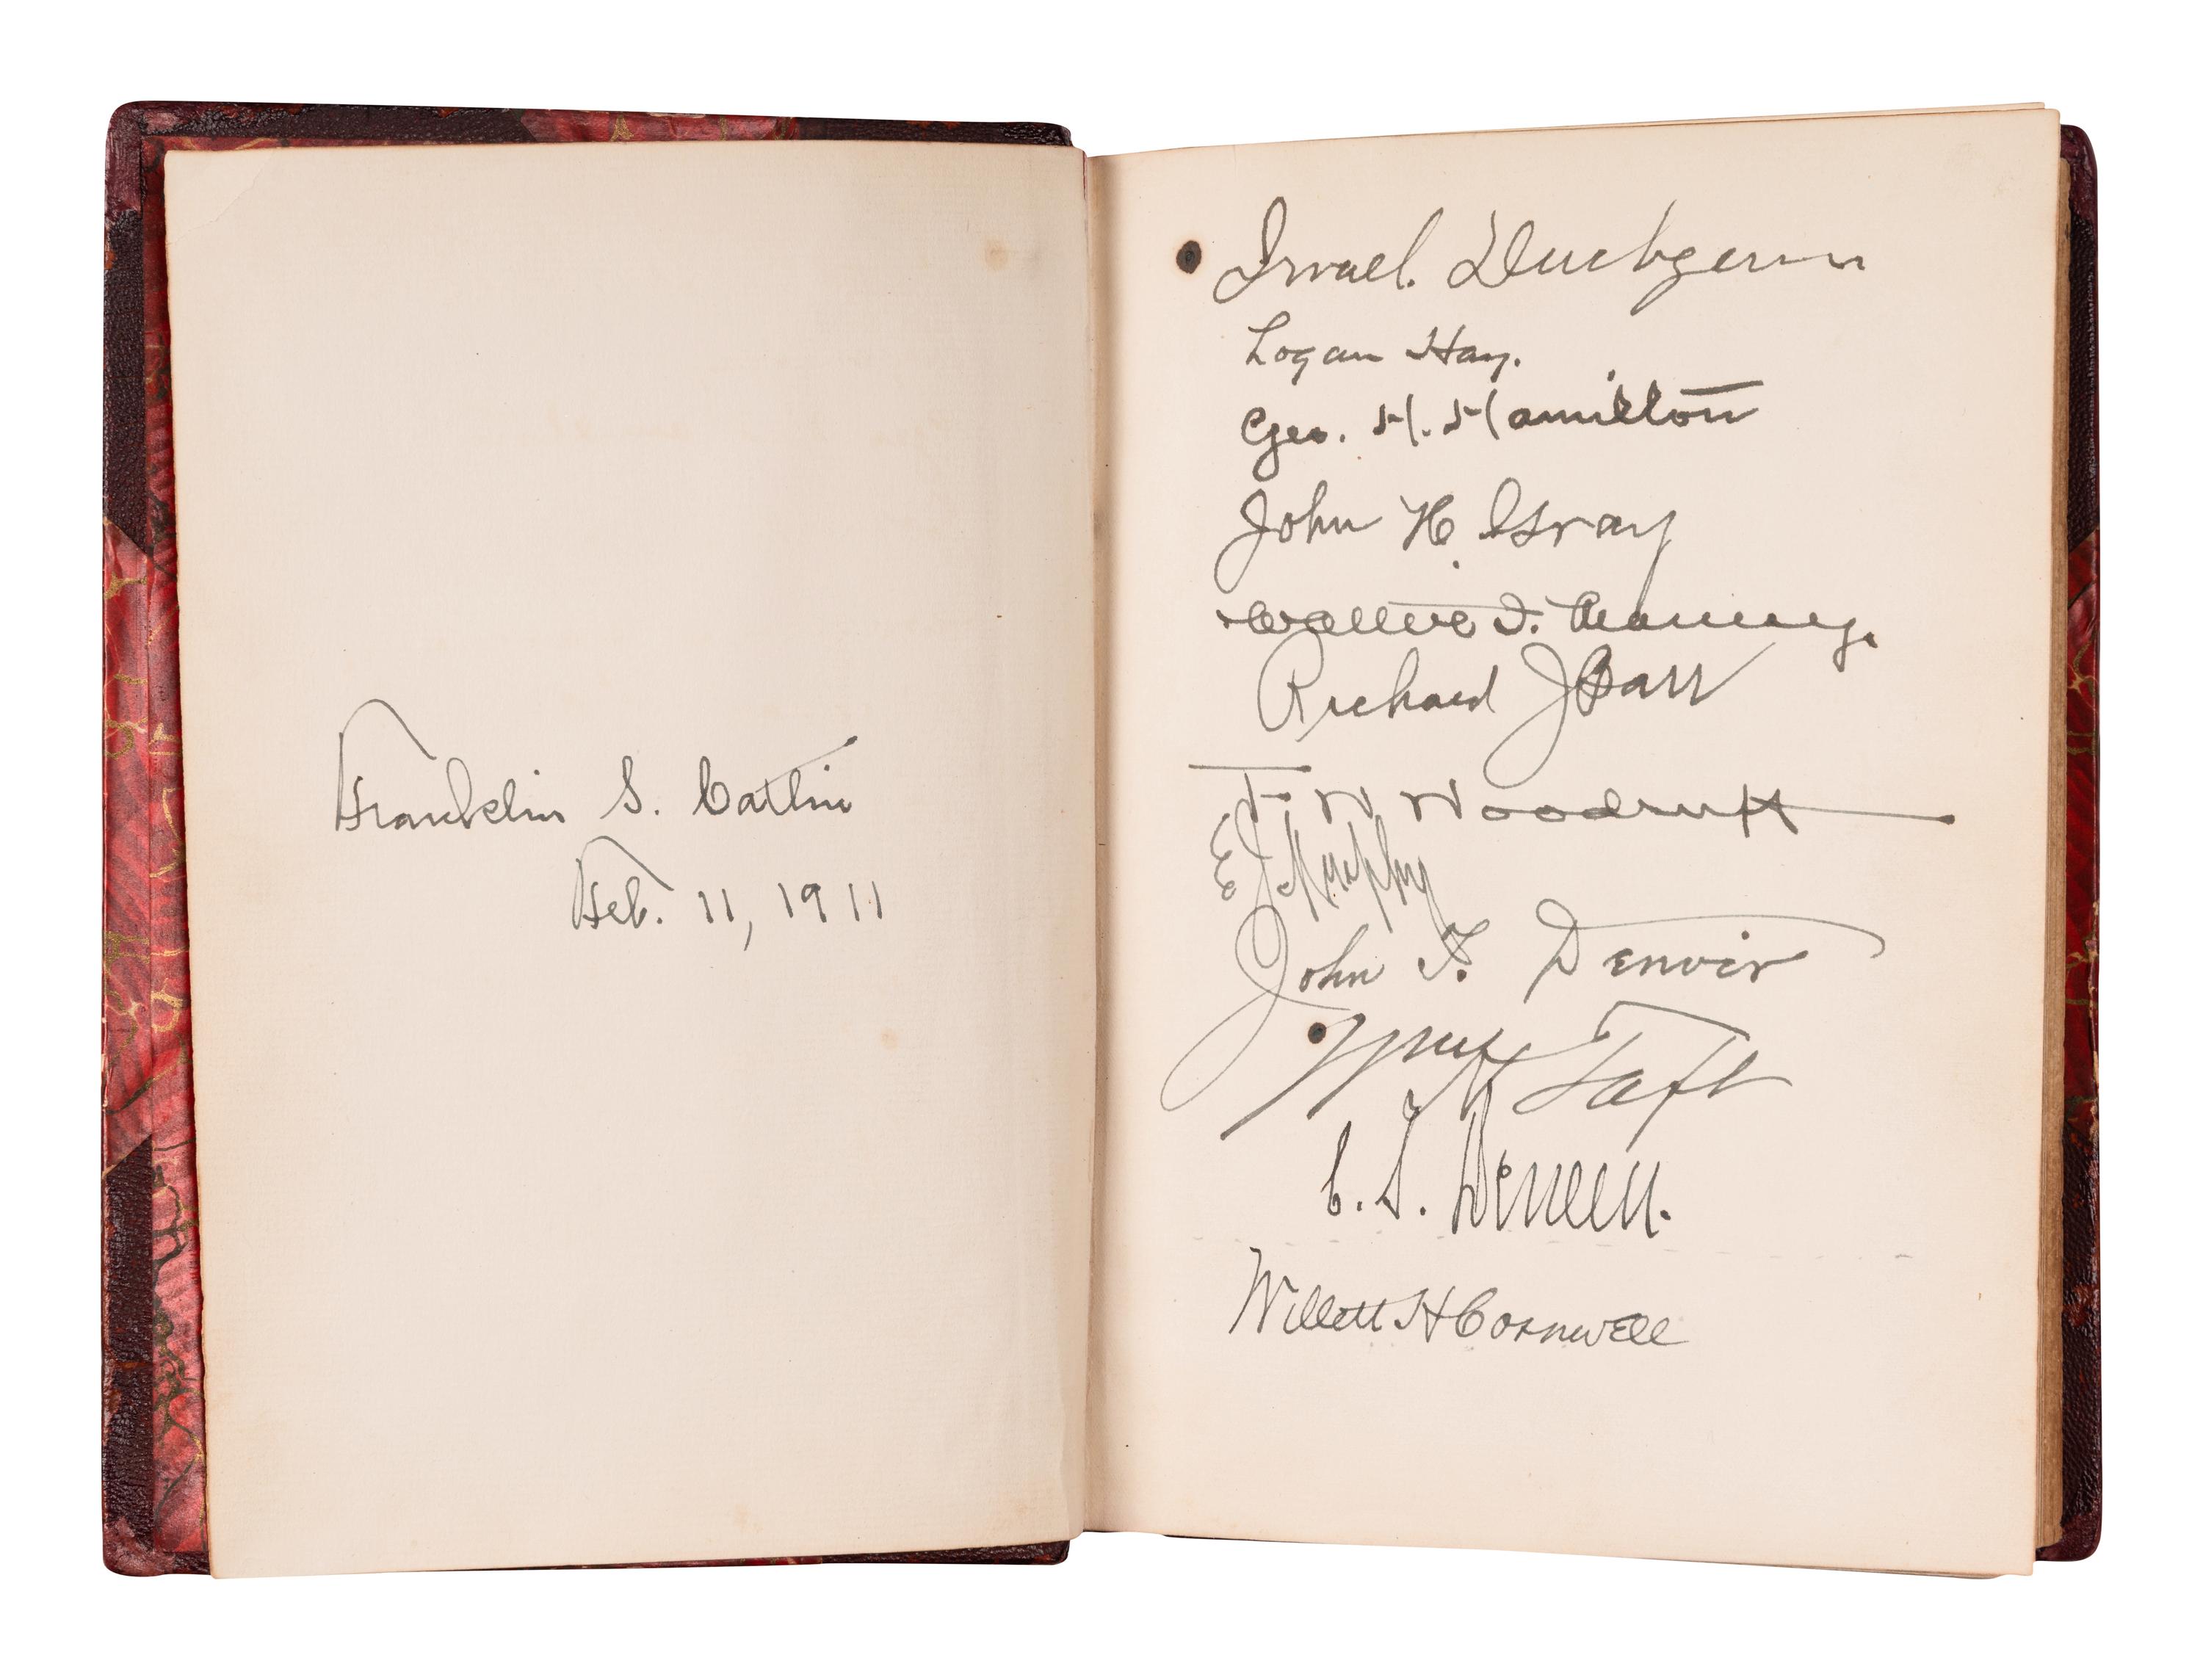 Franklin S. Catlin
Feb. 11, 1911
Israel
Logan Hay.
Geo. H. Hamilton
John H. Gray
Walter I. Manny.
Richard J Barr
F W Woodruff
E J Murphy
John T. Denvir
Wm H Taft
C. S. Deneen.
Willett H Cornwell